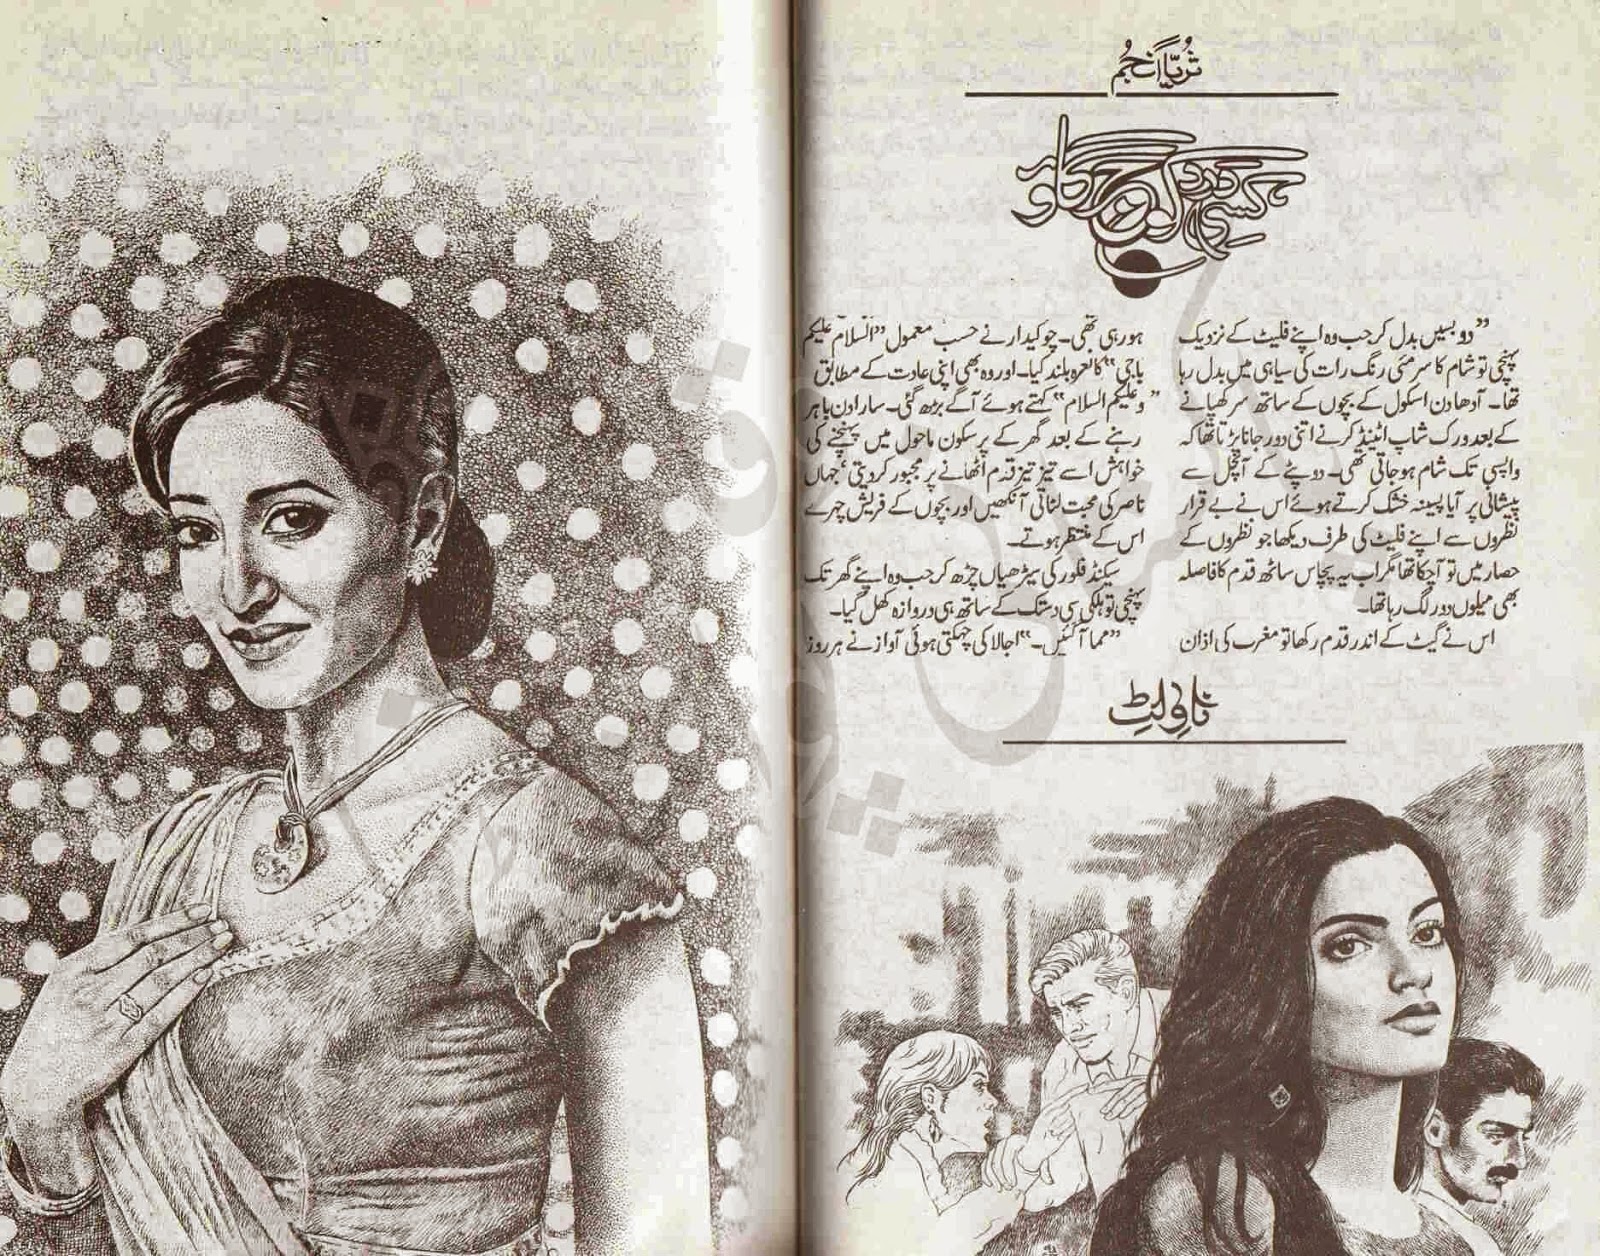 ثریا انجم
دو بسیں بدل کر جب وہ اپنے فلیٹ کے نزدیک
پہنچی تو شام کا سرمئی رنگ رات کی سیاہی میں بدل رہا
تھا۔ آدھا دن اسکول کے بچوں کے ساتھ سر کھپانے
کے بعد ورک شاپ اٹینڈ کرنے اتنی دور جانا پڑتا تھا کہ
واپسی تک شام ہو جاتی تھی۔ دوپٹے کے آنچل سے
پیشانی پر آیا پسینہ خشک کرتے ہوئے اس نے بے قرار
نظروں سے اپنے فلیٹ کی طرف دیکھا جو نظروں کے
حصار میں تو آچکا تھا مگر اب یہ پچاس ساٹھ قدم کا فاصلہ
بھی میلوں دور لگ رہا تھا۔
اس نے گیٹ کے اندر قدم رکھا تو مغرب کی اذان
ہو رہی تھی۔ چوکیدار نے حسب معمول ”السلام علیکم
باجی“ کا نعرہ بلند کیا۔ اور وہ بھی اپنی عادت کے مطابق
”وعلیکم السلام“ کہتے ہوئے آگے بڑھ گئی۔ سارا دن باہر
رہنے کے بعد گھر کے پرسکون ماحول میں پہنچنے کی
خواہش اسے تیز تیز قدم اٹھانے پر مجبور کر دیتی، جہاں
ناصر کی محبت لٹاتی آنکھیں اور بچوں کے فریش چہرے
اس کے منتظر ہوتے۔
سیکنڈ فلور کی سیڑھیاں چڑھ کر جب وہ اپنے گھر تک
پہنچی تو ہلکی سی دستک کے ساتھ ہی دروازہ کھل گیا۔
”مما آگئیں۔“ اجالا کی چہکتی ہوئی آواز نے ہر روز
ناولٹ